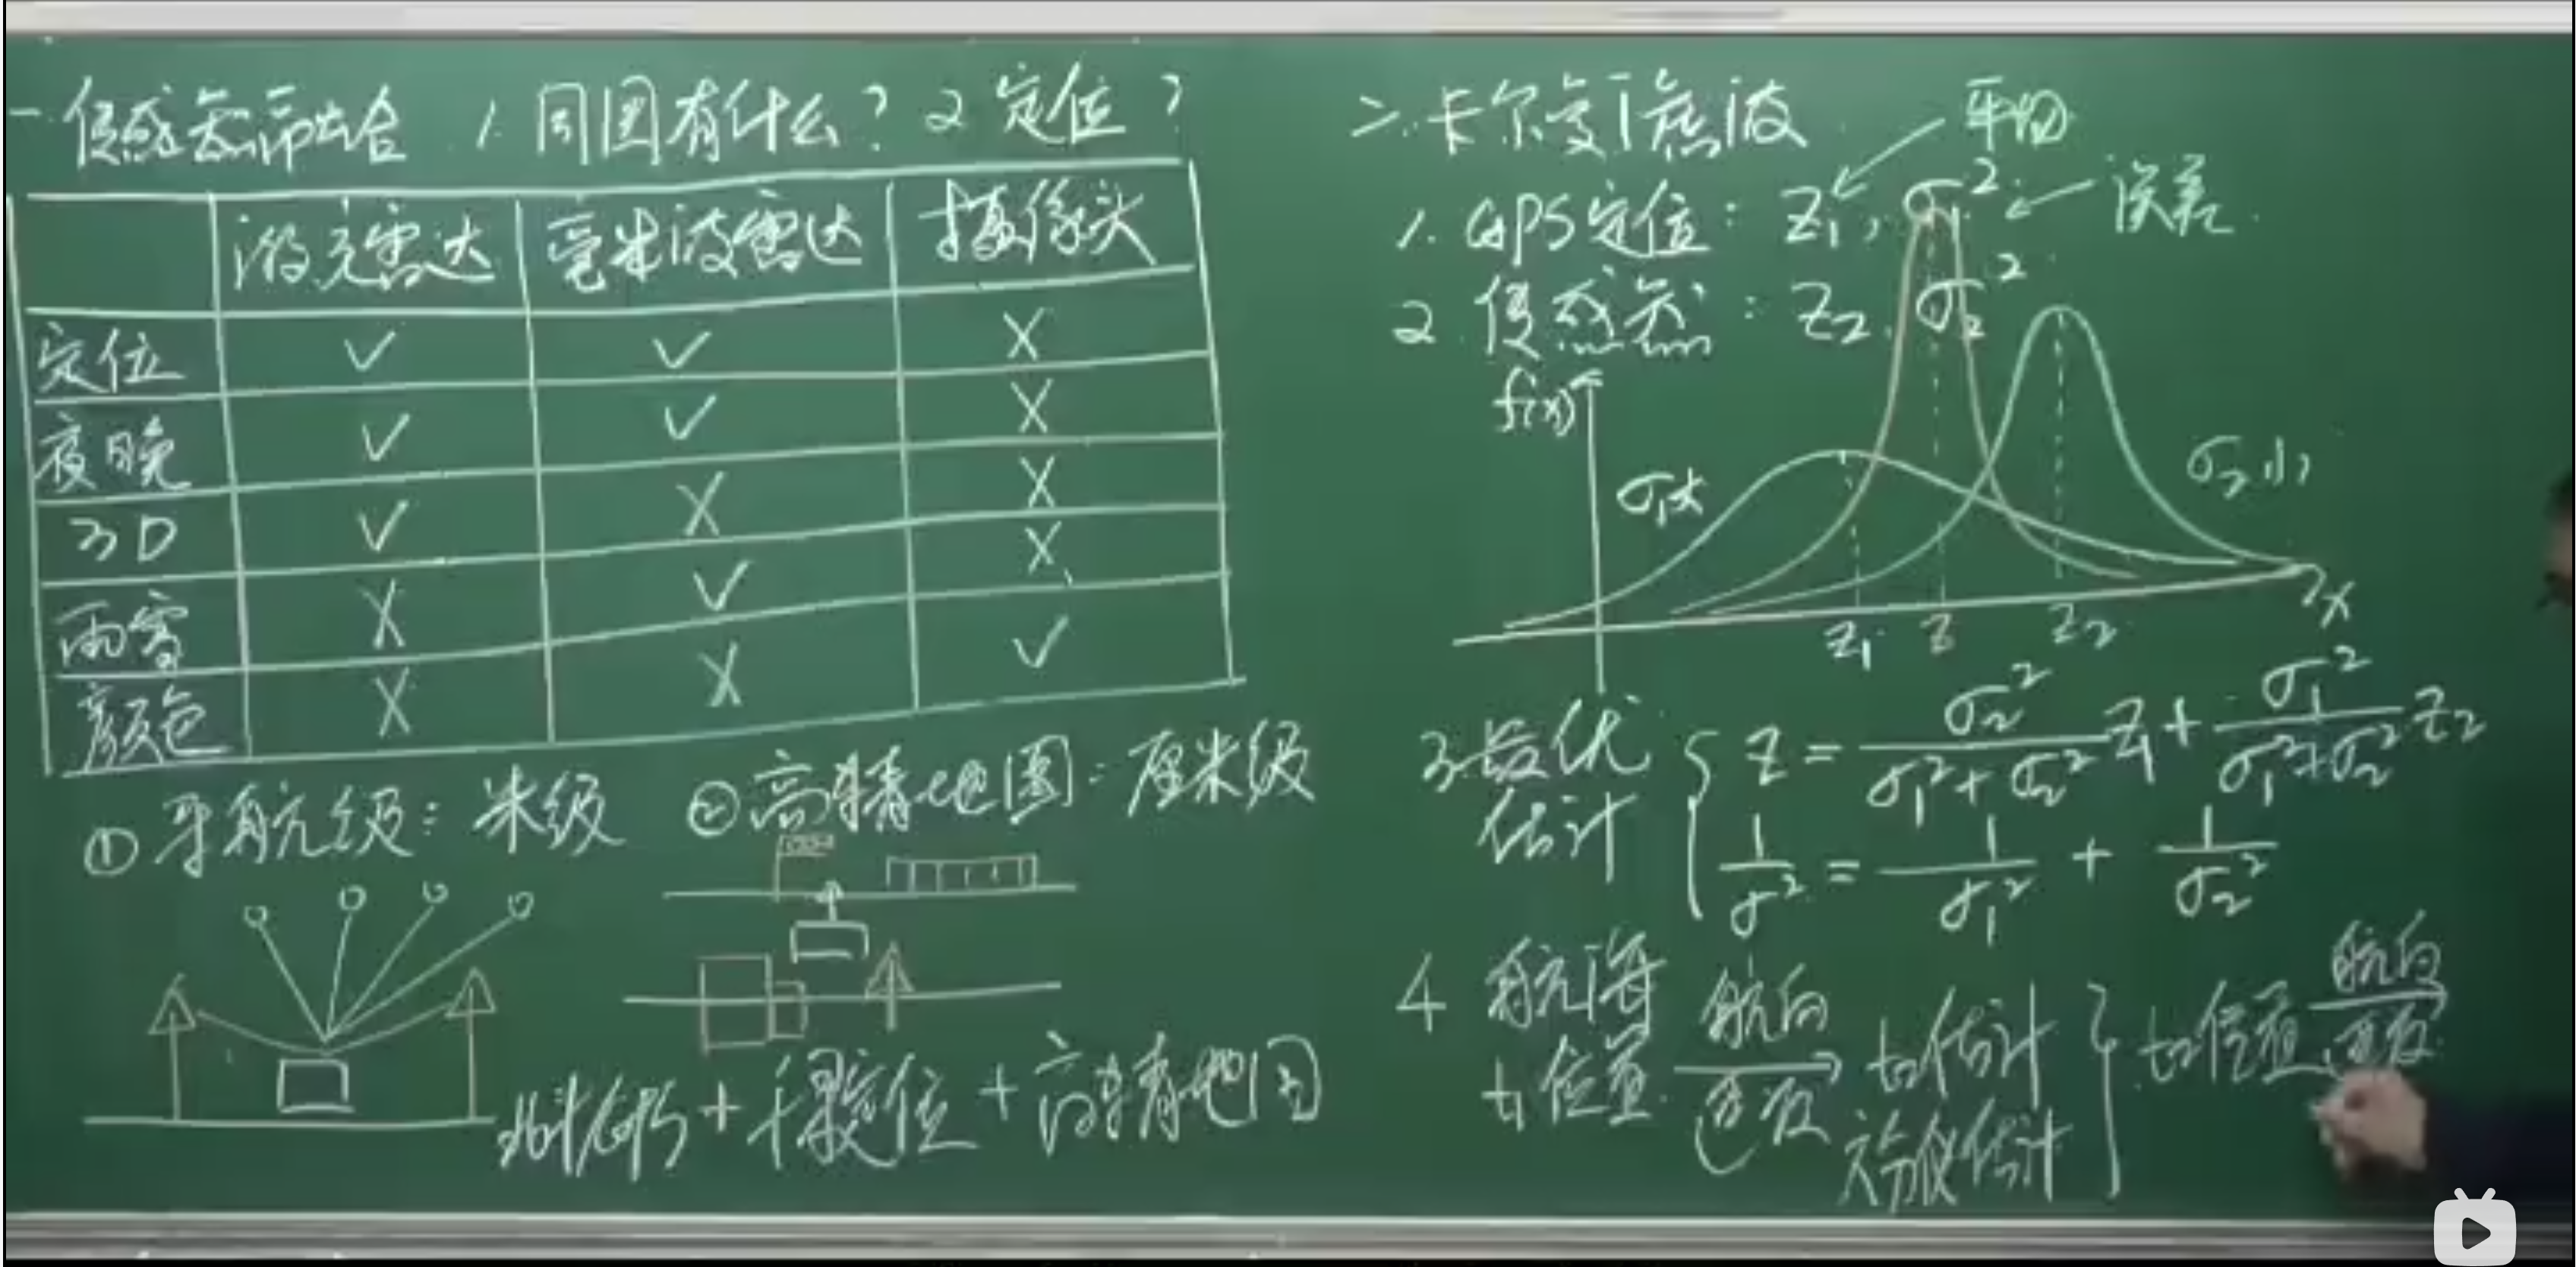 一.传感器融合 1.周围有什么? 2 定位?
激光雷达 毫米波雷达 摄像头
定位 ✓ ✓ X
夜晚 ✓ ✓ X
3D ✓ X X
雨雪 X ✓ X
颜色 X X ✓
①导航级: 米级 ②高精地图: 厘米级
北斗/GPS + 千寻定位 + 高精地图
二.卡尔曼滤波
平均
1. GPS定位: Z₁, σ₁² 误差
2. 传感器: Z₂, σ₂²
f(x)
σ₁大 σ₂小
Z₁ Z Z₂ x
3.最优估计 { Z = σ₂²/(σ₁²+σ₂²) Z₁ + σ₁²/(σ₁²+σ₂²) Z₂
1/σ² = 1/σ₁² + 1/σ₂²
4 航海
t₁位置 航向 速度 t₂估计
六分仪估计
} t₂位置 航向 速度